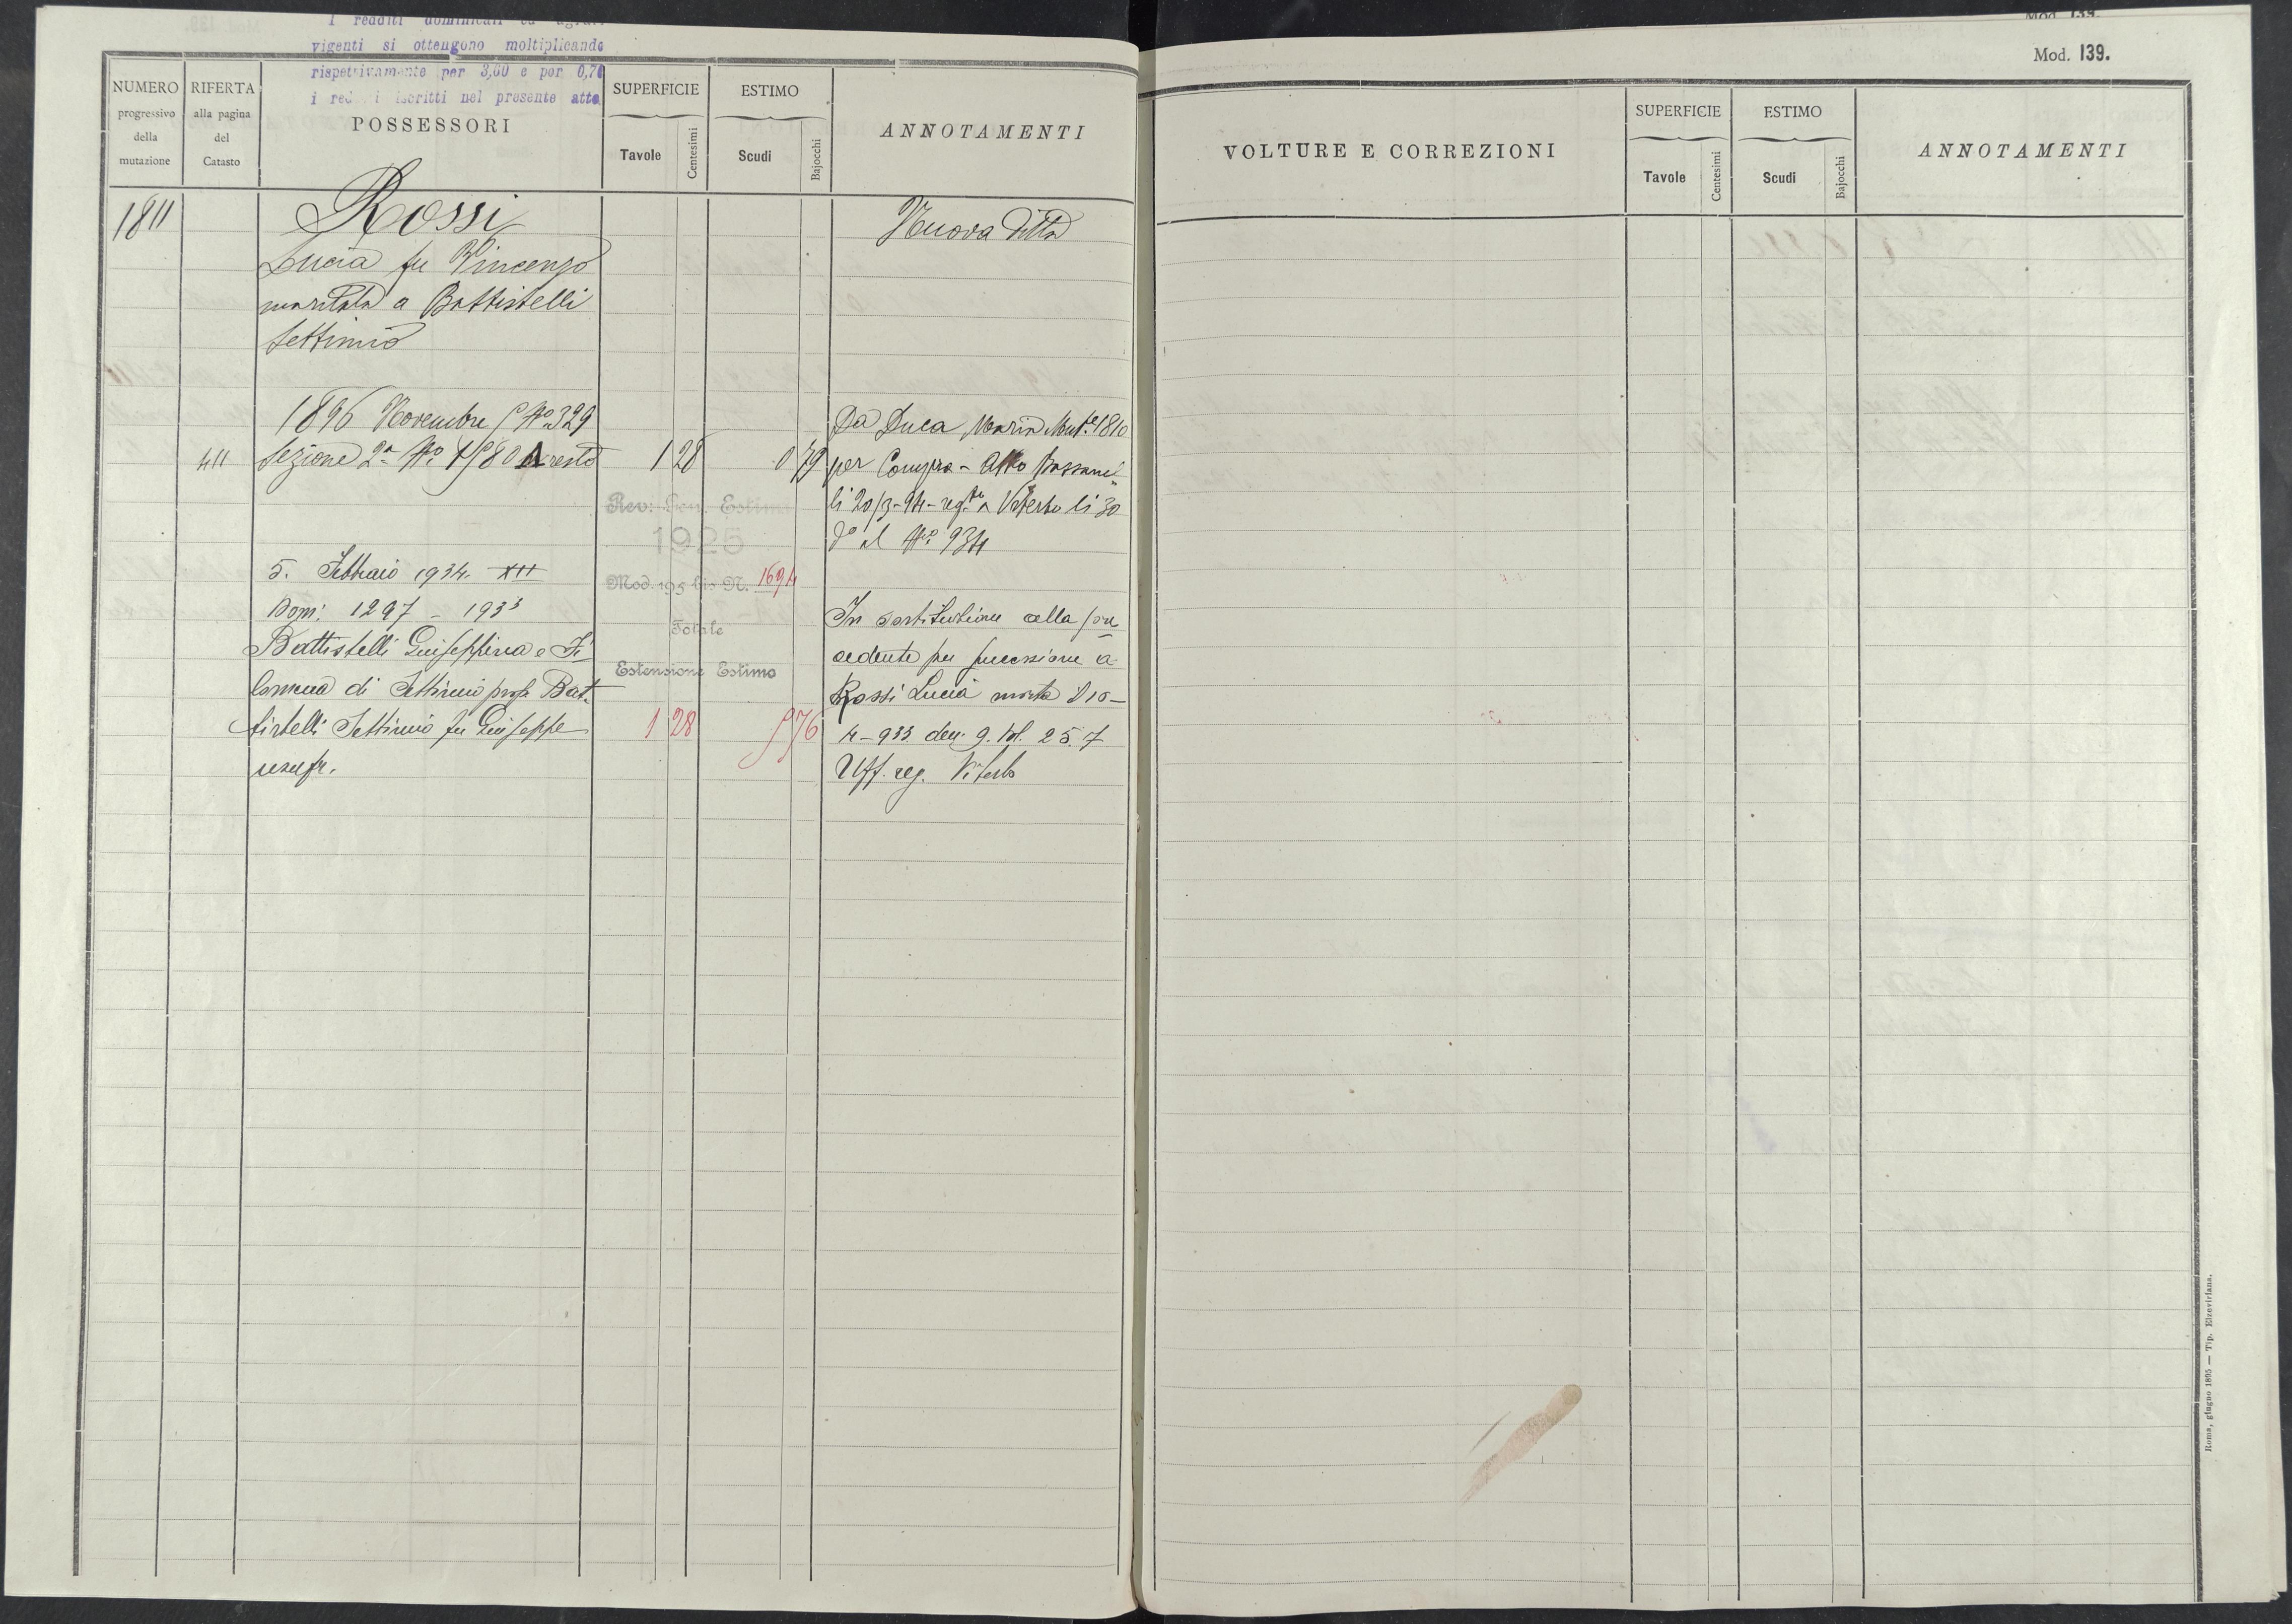 I redditi dominicali ed agrari
vigenti si ottengono moltiplicando
rispettivamente per 3,60 e per 0,70
i redditi iscritti nel presente atto
NUMERO
progressivo
della
mutazione
RIFERTA
alla pagina
del
Catasto
POSSESSORI
SUPERFICIE
Tavole
Centesimi
ESTIMO
Scudi
Bajocchi
ANNOTAMENTI
1811
Rossi
Nuova Ditta
Lucia fu Vincenzo
maritata a Battistelli
Settimio
1896 Novembre 5 No 329
Da Duca Maria Mut.e 1810
411 Sezione 2a No resto 1 28 0 79
per Compra - Atto
li 20/3-94 - reg.to a Viterbo li 30
do al No 934
Rev: Gen. Estimo
1925
Mod. 195 bis N. 1694
Totale
Estensione Estimo
1 28 76
5. Febbraio 1934. XII
Dom: 1297 - 1933
Battistelli Giuseppina e Fi
lomena di Settimio propr. Bat
tistelli Settimio fu Giuseppe
usufr.
In sostituzione alla pre
cedente per successione a
Rossi Lucia morta il 10-
4-933 den. 9. Vol. 257
Uff. reg. Viterbo
Mod. 139.
Mod. 139.
VOLTURE E CORREZIONI
SUPERFICIE
Tavole
Centesimi
ESTIMO
Scudi
Bajocchi
ANNOTAMENTI
Roma, giugno 1895 — Tip. Elzeviriana.